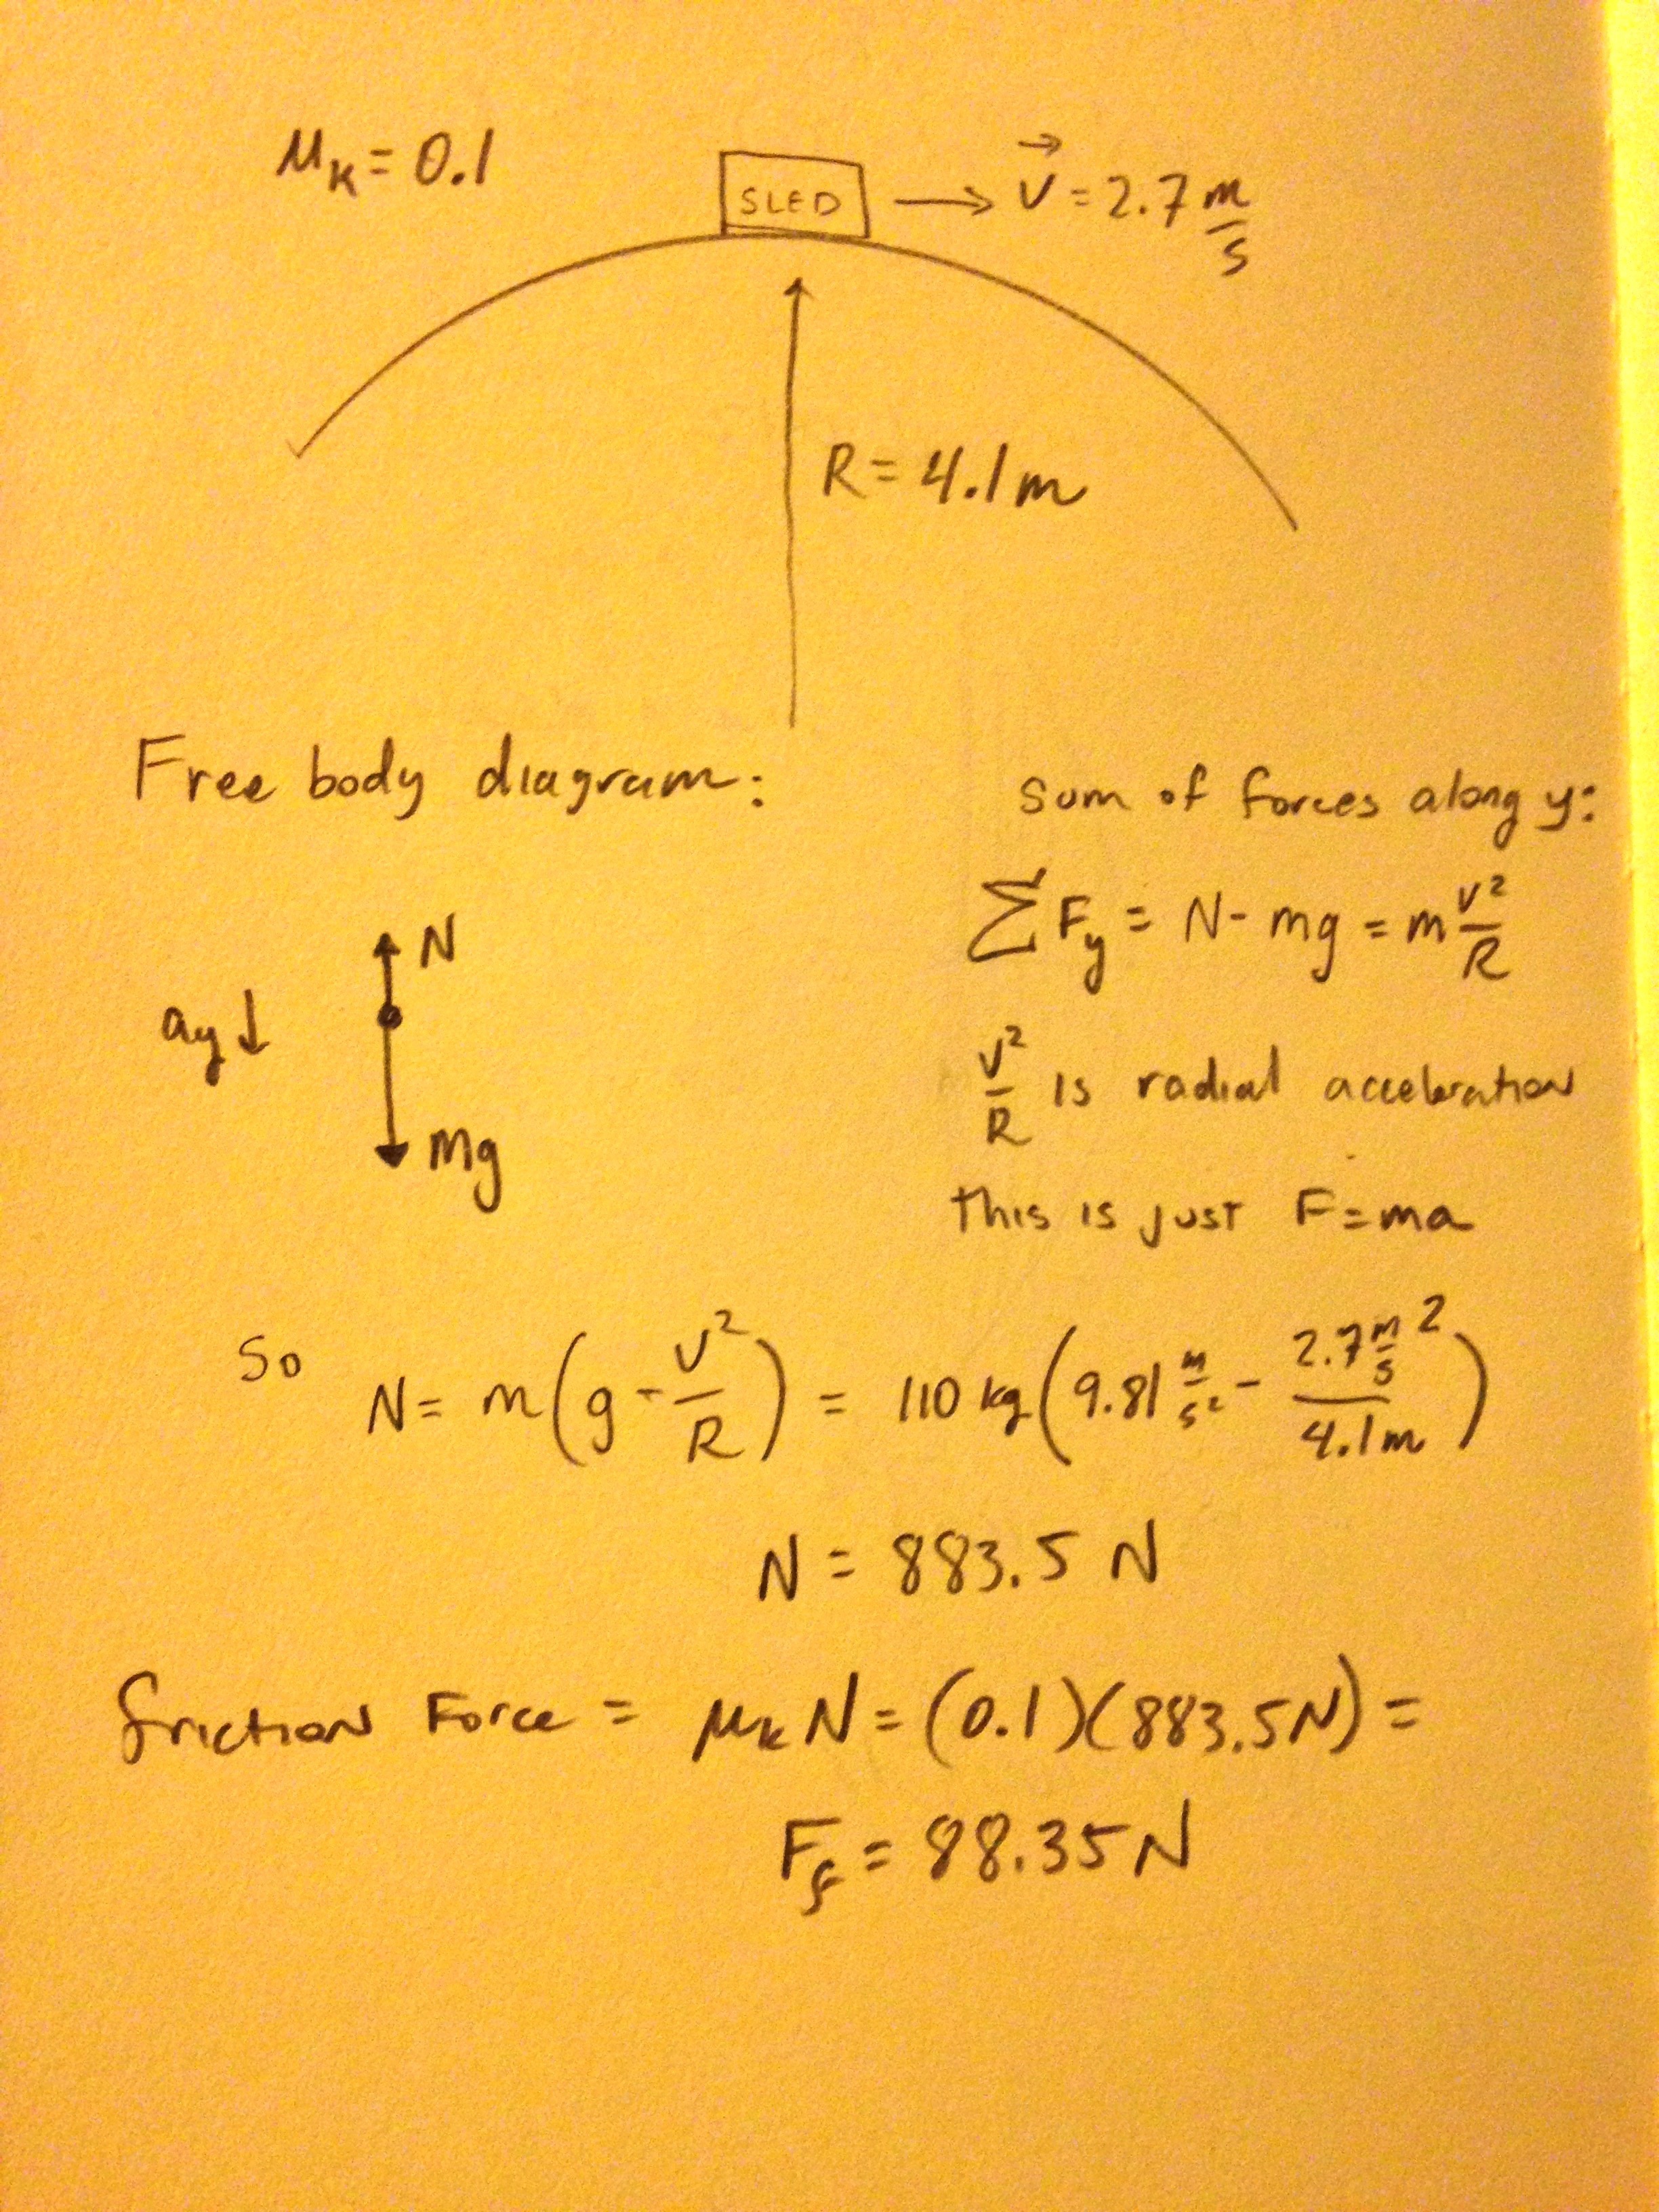 μₖ = 0.1
SLED → v⃗ = 2.7 m/s
R = 4.1 m
Free body diagram:
N
ay ↓
mg
sum of forces along y:
∑ Fy = N - mg = m v²/R
v²/R is radial acceleration
this is just F = ma
So N = m(g - v²/R) = 110 kg (9.81 m/s² - 2.7 m/s ²/4.1m)
N = 883.5 N
friction Force = μₖ N = (0.1)(883.5N) =
Ff = 88.35 N